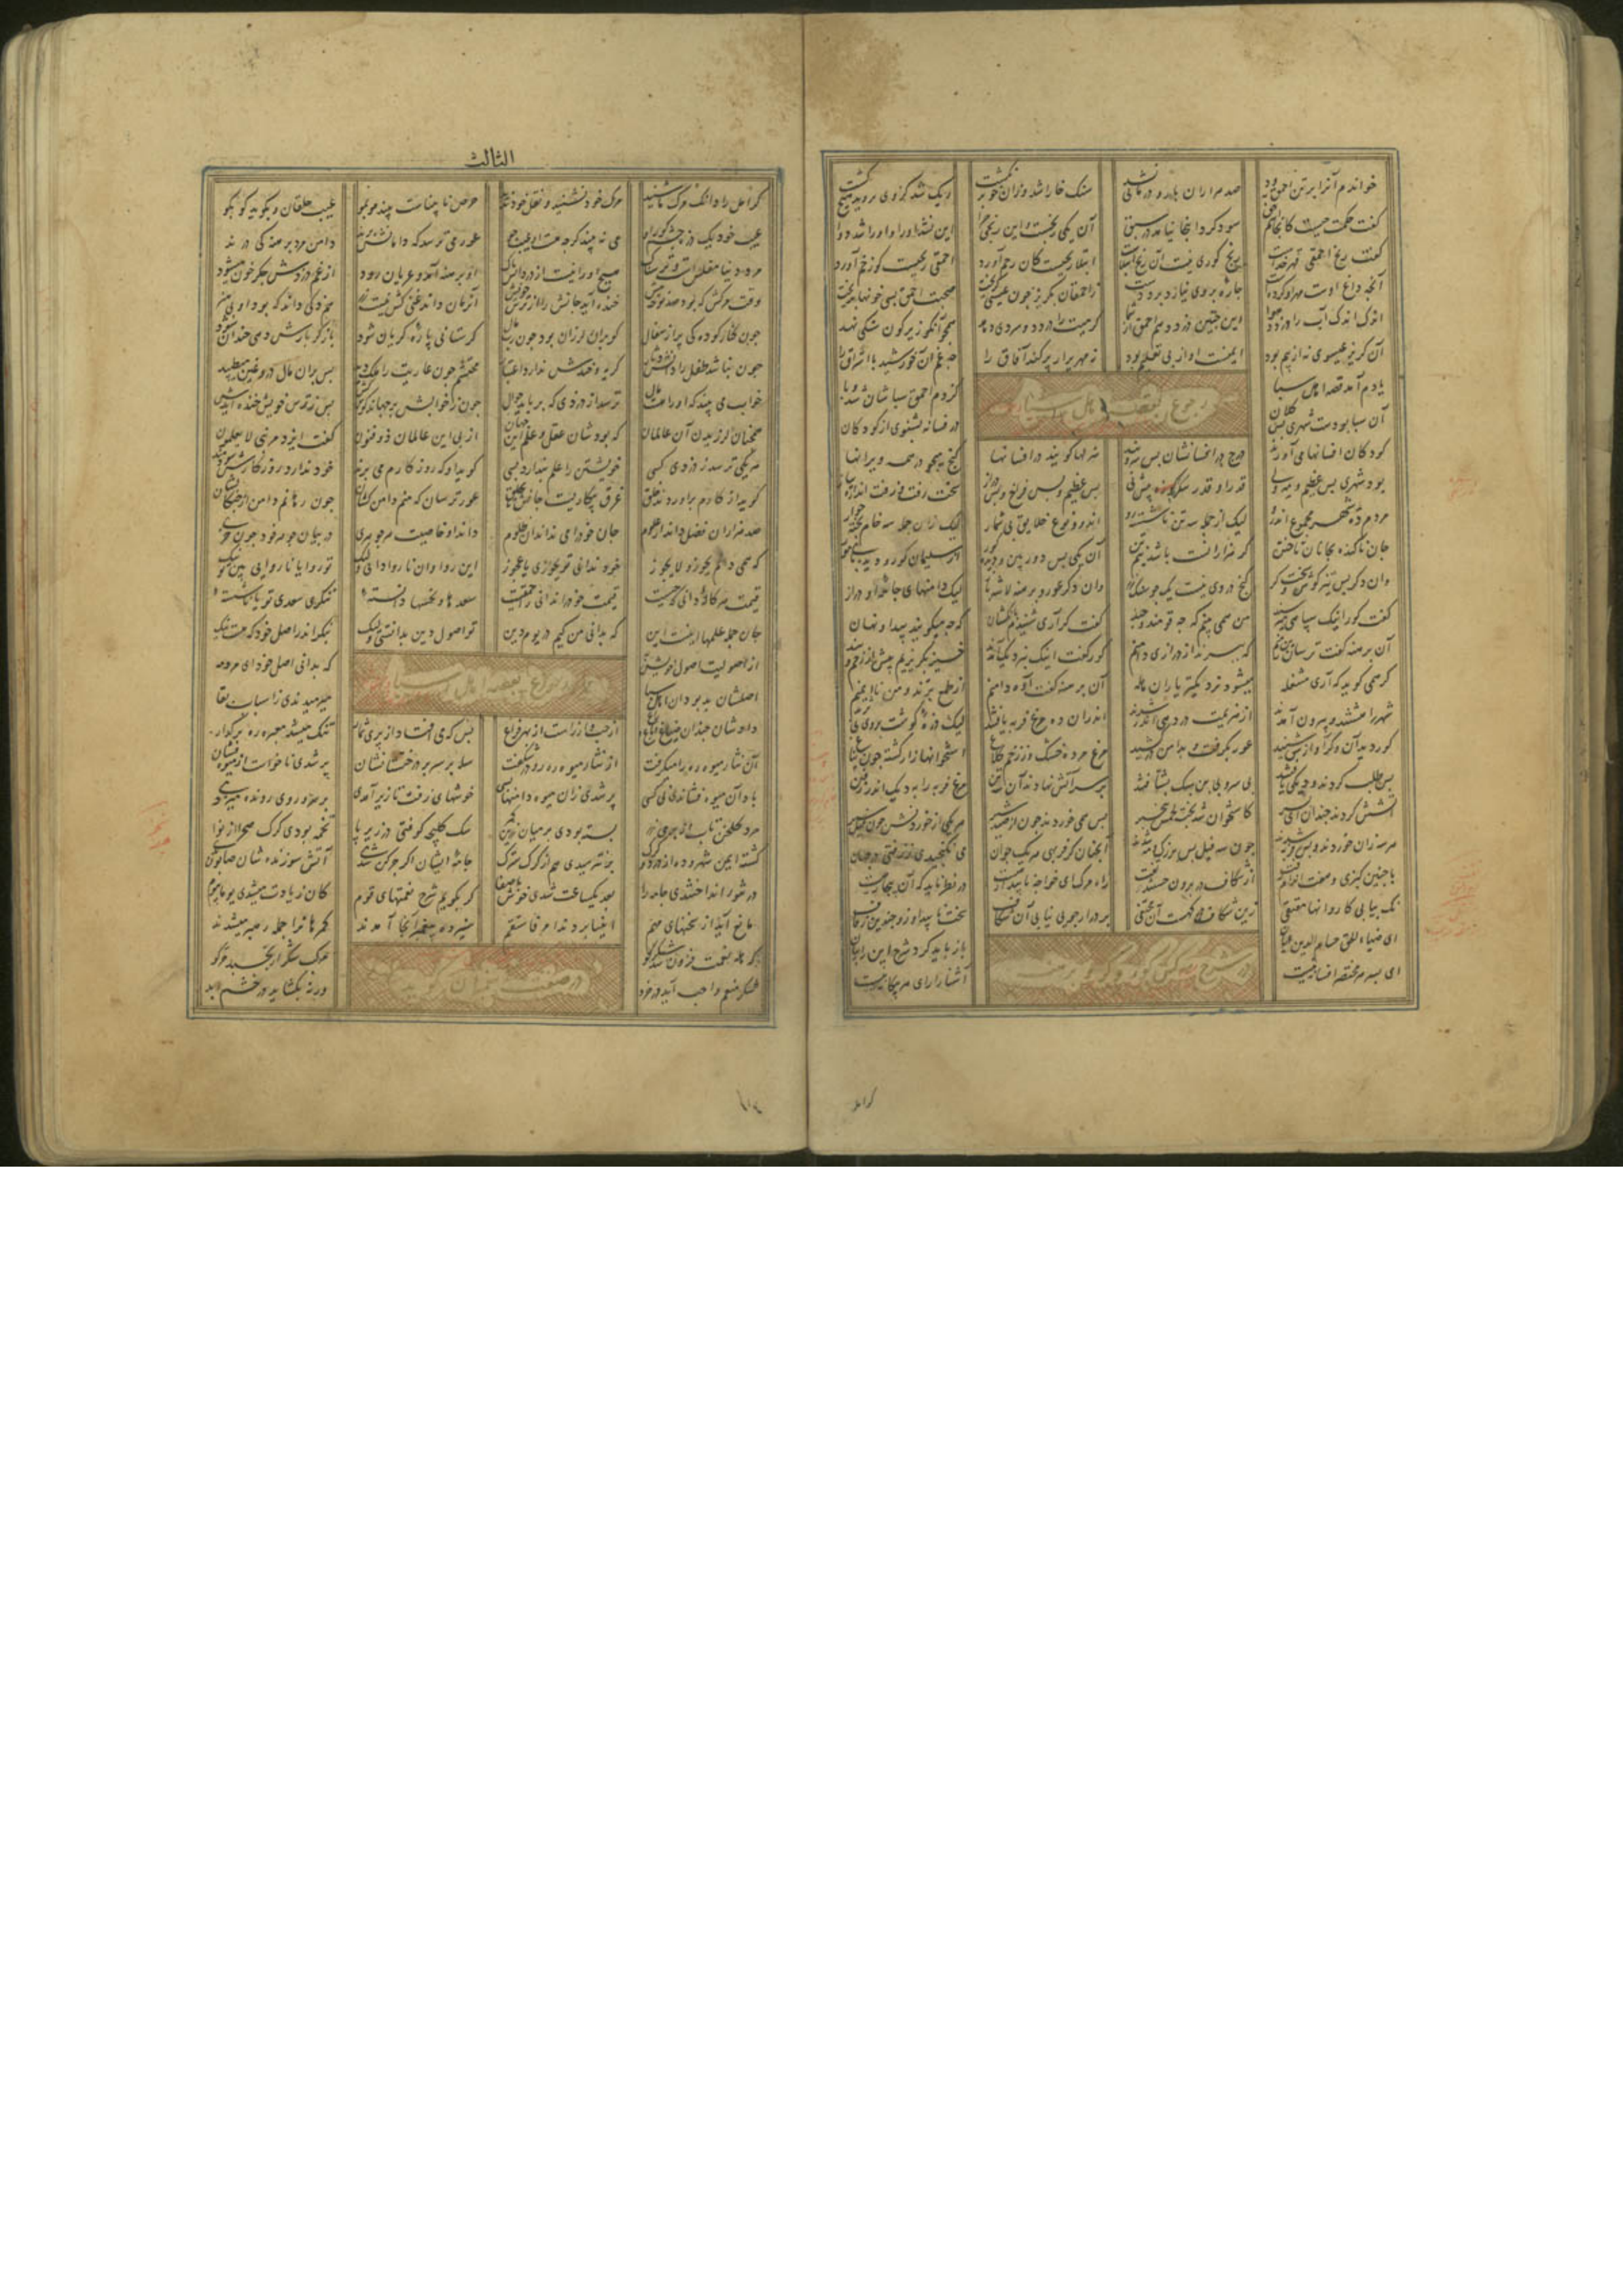 خواندم آنرا بر تن احمق بود
صد هزاران بار و درمانی نشد
سنک خارا شد وزان خو بر نکشت
ریک شد کز وی نروید هیچ کشت
گفت حکمت چیست کانجا نام حق
سود کرد اینجا نیامد در سبق
آن یکی رنجست و این رنجی چرا
این نشد او را و او را شد دوا
گفت رنج احمقی قهر خداست
رنج کوری نیست آن رنج ابتلاست
ابتلا رنجیست کان رحم آورد
احمقی رنجیست کو زخم آورد
آنچه داغ اوست مهر او کرده است
چاره بروی نیارد برد دست
ز احمقان بکریز چون عیسی کریخت
صحبت احمق بسی خونها بریخت
اندک اندک آب را دزدد هوا
این چنین دزدد هم احمق از شما
کرمیت را دزدد و سردی دهد
همچو آنکو زیر کون سنکی نهد
آن کریز عیسوی نه از بیم بود
ایمنست او از پی تعلیم بود
زمهریر ار پر کند آفاق را
چه غم آن خورشید با اشراق را
رجوع بقصه اهل سبا
یادم آمد قصه اهل سبا
کز دم احمق سباشان شد وبا
آن سبا بودست شهری بس کلان
در فسانه بشنوی از کودکان
کودکان افسانها می آورند
درج در افسانشان بس سر و پند
هزلها کویند در افسانها
کنج میجو در همه ویرانها
بود شهری بس عظیم و مه ولی
قدر او قدر سکره بیش نی
بس عظیم و بس فراخ و بس دراز
سخت زفت زفت اندازه پیاز
مردم ده شهر مجموع اندرو
لیک از جمله سه تن ناشسته رو
اندرو نوع خلایق بی شمار
لیک زان جمله سه خام پخته خوار
جان ناکرده بجانان تاختن
کر هزارانست باشد نیم تن
آن یکی بس دور بین و دیده کور
از سلیمان کور و دیده پای مور
وان دکر بس تیز کوش و سخت کر
کنج در وی نیست یک جو سنک زر
وان دکر عور و برهنه لاشه باز
لیک دامنهای جامه او دراز
کفت کور اینک سپاهی میرسند
من همی بینم که چه قومند و چند
کفت کر آری شنیدم بانکشان
که چه میکویند پیدا و نهان
آن برهنه کفت ترسان زین منم
که ببرند از درازی دامنم
کور کفت اینک بنزدیک آمدند
خیز بکریزیم پیش از زخم و بند
کر همی کوید که آری مشغله
میشود نزدیکتر یاران هله
آن برهنه کفت آوه دامنم
از طمع برند و من ناایمنم
شهر را هشتند و بیرون آمدند
از هزیمت در دهی اندر شدند
اندران ده مرغ فربه یافتند
لیک ذره کوشت بر وی نی
کور دید آن و کر آوازش شنید
عور بکرفت و بدامن در کشید
مرغ مرده خشک وز زخم کلاغ
استخوانها زار کشته چون پناغ
پس طلب کردند و دیکی یافتند
بی سر و بی بن سبک بشتافتند
بر سر آتش نهادند آن سه تن
مرغ فربه را به دیک اندر ز فن
آتشش کردند چندان ای پسر
کاستخوان شد پخته لحمش بیخبر
پس همی خوردند چون از صید شیر
هر یکی از خوردنش چون پیل سیر
هر سه زان خوردند و بس فربه شدند
چون سه پیل بس بزرک و مه شدند
آنچنان کز فربهی هر یک جوان
می نکنجیدی ز زفتی در جهان
با چنین کبزی و هفت اندام زفت
از شکاف در برون جستند تفت
راه مرک ای خواجه ناپیدا رهیست
در نظر ناید که آن بیجا رهیست
نک پیاپی کاروانها مقتفی
زین شکاف در که هست آن مختفی
بر در ار جویی نیابی آن شکاف
سخت ناپیدا و زو چندین زفاف
ای ضیاء الحق حسام الدین عیان
باز باید کرد شرح این را بیان
ای بسر هر مختصر افسانه ایست
آشنا را رای هر بیکانه ایست
در شرح کور و کر و برهنه
الثالث
کر امل را دانک مرک ما شنید
مرک خود نشنید و نقل خود ندید
حرص نابیناست بیند مو بمو
عیب خلقان و بکوید کو بکو
عیب خود یک ذره چشم کور او
می نه بیند کرچه هست او عیب جو
عور می ترسد که دامانش برند
دامن مرد برهنه کی درند
مرد دنیا مفلس است و ترسناک
هیچ او را نیست از دزدانش باک
او برهنه آمد و عریان رود
از غم دزدش جکر خون میشود
وقت مرکش که بود صد نوحه بیش
خنده آید جانش را از ترس خویش
آن زمان داند غنی کش نیست زر
هم ذکی داند که بود او بی هنر
چون کنار کودکی پر از سفال
کو بران لرزان بود چون رب مال
کر ستانی پاره کریان شود
باز کر بازش دهی خندان شود
چون نباشد طفل را دانش دثار
کریه و خندش ندارد اعتبار
محتشم چون عاریت را ملک دید
پس بران مال دروغین میطپید
خواب می بیند که او راهست مال
ترسد از دزدی که برباید جوال
چون ز خوابش بر جهاند کوش کش
پس ز ترس خویش خنده آیدش
همچنان لرزیدن آن عالمان
که بودشان عقل و علم این جهان
از پی این عالمان ذو فنون
کفت ایزد در نبی لا یعلمون
هر یکی ترسد ز دزدی کسی
خویشتن را علم پندارد بسی
کوید او که روزکارم می برند
خود ندارد روزکار سودمند
کوید از کارم براوردند خلق
غرق بیکاریست جانش تا بحلق
عور ترسان که منم دامن کشان
چون رهانم دامن از چنکالشان
صد هزاران فضل داند از علوم
جان خود را می نداند آن ظلوم
داند او خاصیت هر جوهری
در بیان جوهر خود چون خری
که همی دانم یجوز و لا یجوز
خود ندانی تو یجوزی یا عجوز
این روا وان ناروا دانی ولیک
تو روا یا ناروایی بین تو نیک
قیمت هر کاله دانی که چیست
قیمت خود را ندانی احمقیست
سعدها و نحسها دانسته
ننکری سعدی تو یا ناشسته
جان جمله علمها اینست این
که بدانی من کیم در یوم دین
تو اصول دین بدانستی ولیک
بنکر اندر اصل خود که هست نیک
از اصولیت اصول خویش به
که بدانی اصل خود ای مرد مه
بقصه اهل سبا
اصلشان بد بود آن اهل سبا
میرمیدندی ز اسباب لقا
دادشان چندان ضیاع و باغ و راغ
از چپ و از راست از بهر فراغ
بس که می افتاد از پری ثمار
تنک میشد معبر ره بر کذار
آن نثار میوه ره را میکرفت
از نثار میوه ره رو در شکفت
سله بر سر در درختستانشان
پر شدی ناخواست از میوه فشان
باد آن میوه فشاندی نی کسی
پر شدی زان میوه دامنها بسی
خوشهای زفت تا زیر آمدی
بر سر و روی رونده میزدی
مرد کلخن تاب از پری زر
بسته بودی بر میان زرین کمر
سک کلیچه کوفتی در زیر پا
تخمه بودی کرک صحرا از نوا
کشته ایمن شهر و ده از دزد و کرک
بز نترسیدی هم از کرک سترک
جامه ایشان اکر چرکن شدی
آتش سوزنده شان صابون
در تنور انداختندی جامه را
بعد یکساعت شدی خوش باصفا
کر بکویم شرح نعمتهای قوم
کان زیادت میشدی یوما بیوم
مانع آید از سخنهای مهم
انبیا بردند امر فاستقم
سیزده پیغمبر آنجا آمدند
کمرهانرا جمله رهبر میشدند
که هله نعمت فزون شد شکر کو
مرکب شکر ار بخسبد حرکوا
شکر منعم واجب آید در خرد
ورنه بکشاید در خشم ابد
در صفت